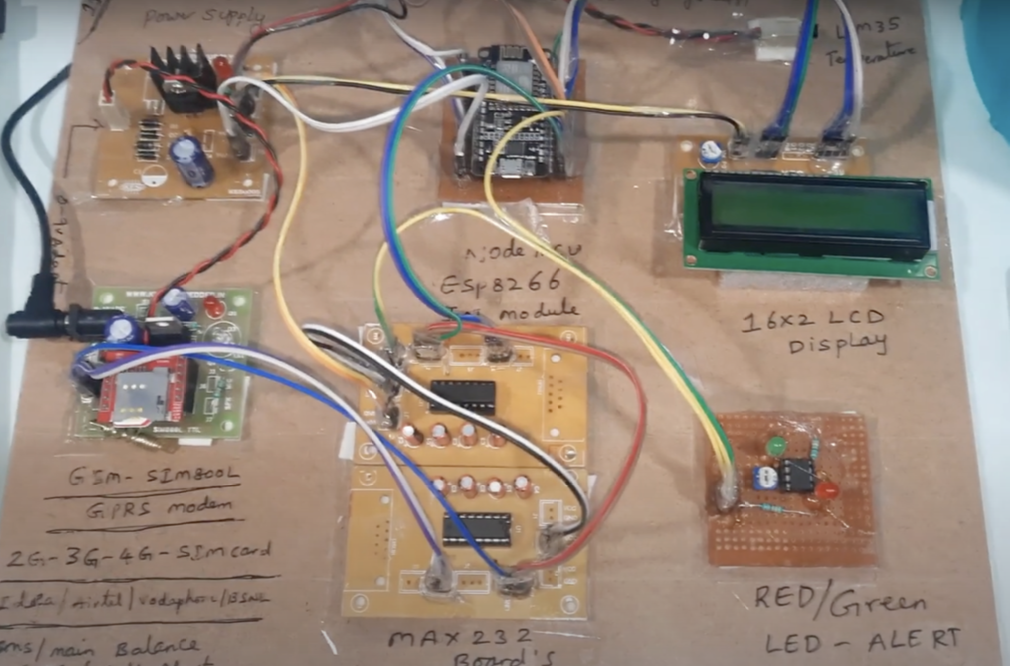 power supply
LM35
Temperature
Node mcu
ESp8266
module
16x2 LCD
Display
SIM800L TTL
GSM- SIM800L
GPRS modem
2G-3G-4G-SIMcard
Idea/Airtel/vodaphone/BSNL
sms/main Balance
MAX232
Board's
RED/Green
LED - ALERT